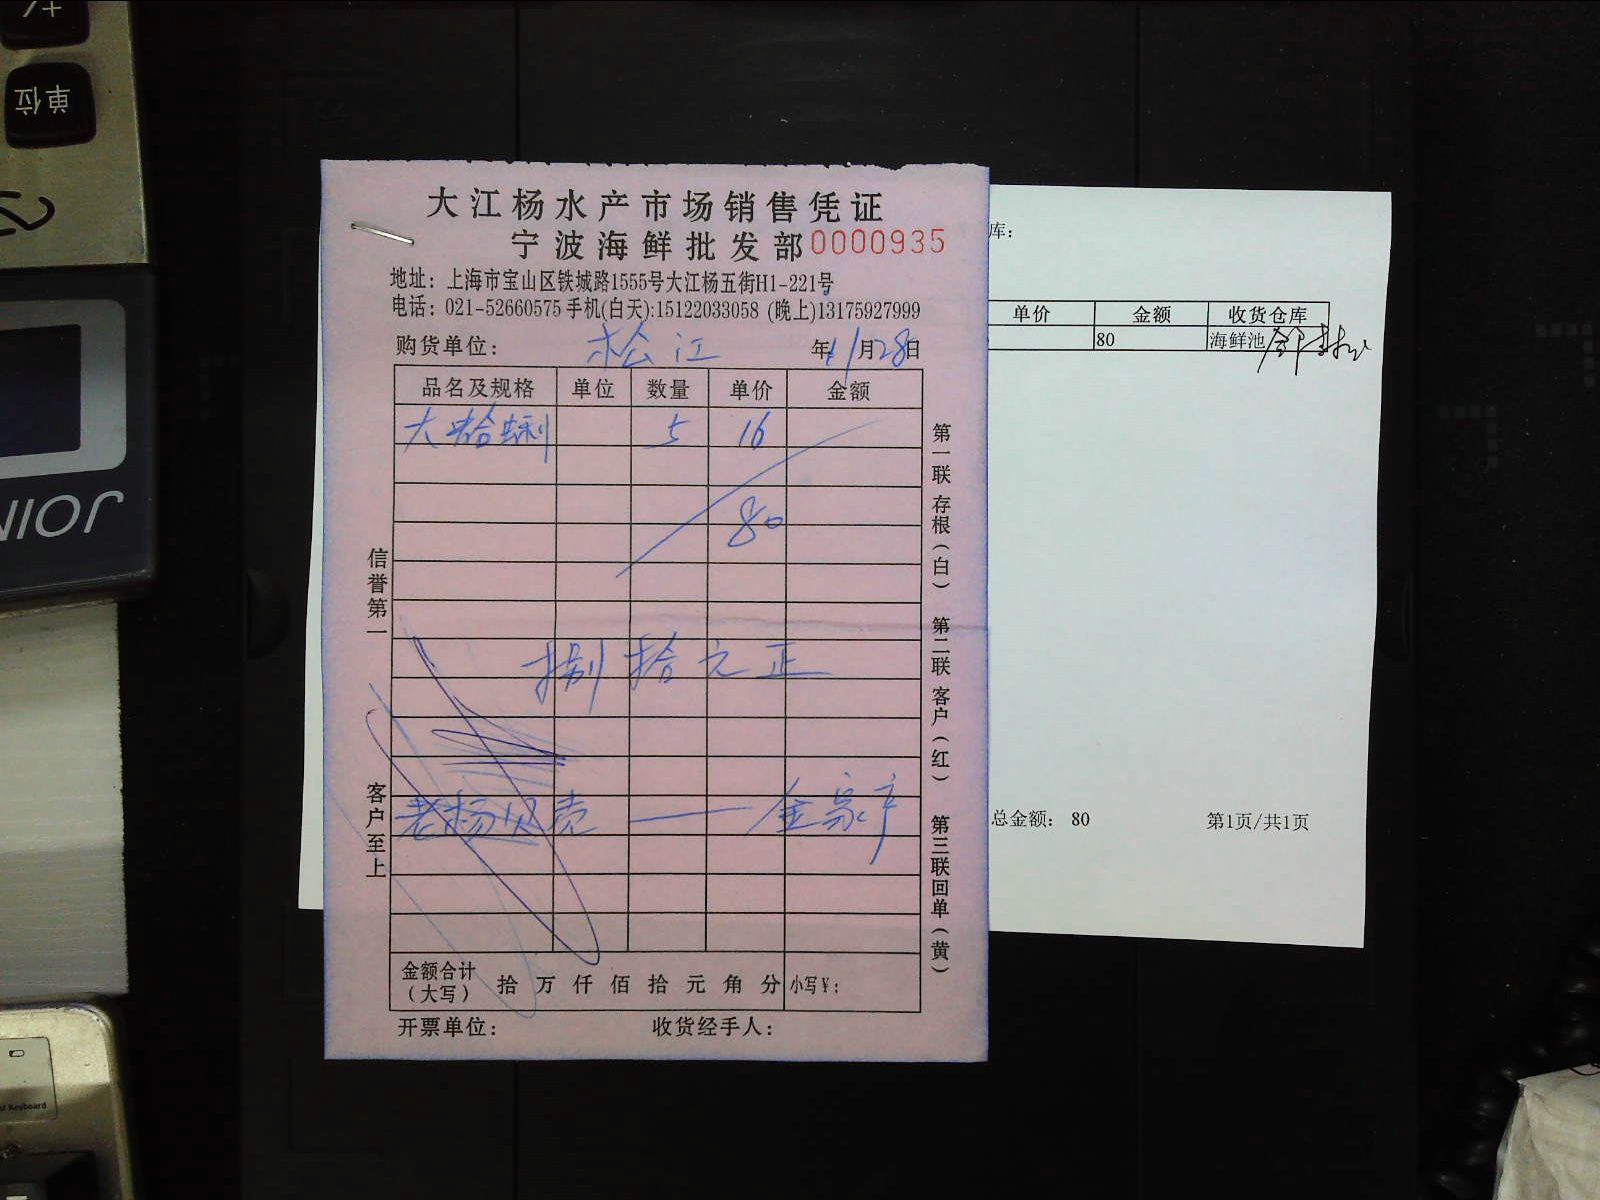 单位
JOIN
大江杨水产市场销售凭证
宁波海鲜批发部0000935
地址：上海市宝山区铁城路1555号大江杨五街H1-221号
电话：021-52660575 手机(白天):15122033058 (晚上)13175927999
购货单位： 松江 年 11月28日
品名及规格 单位 数量 单价 金额
大蛤蜊 5 16
80
捌拾元正
老杨贝壳 — 金家产
金额合计（大写） 拾 万 仟 佰 拾 元 角 分 小写¥：
开票单位： 收货经手人：
信誉第一
客户至上
第一联 存根（白） 第二联 客户（红） 第三联 回单（黄）
库：
单价 金额 收货仓库
80 海鲜池
总金额： 80 第1页/共1页